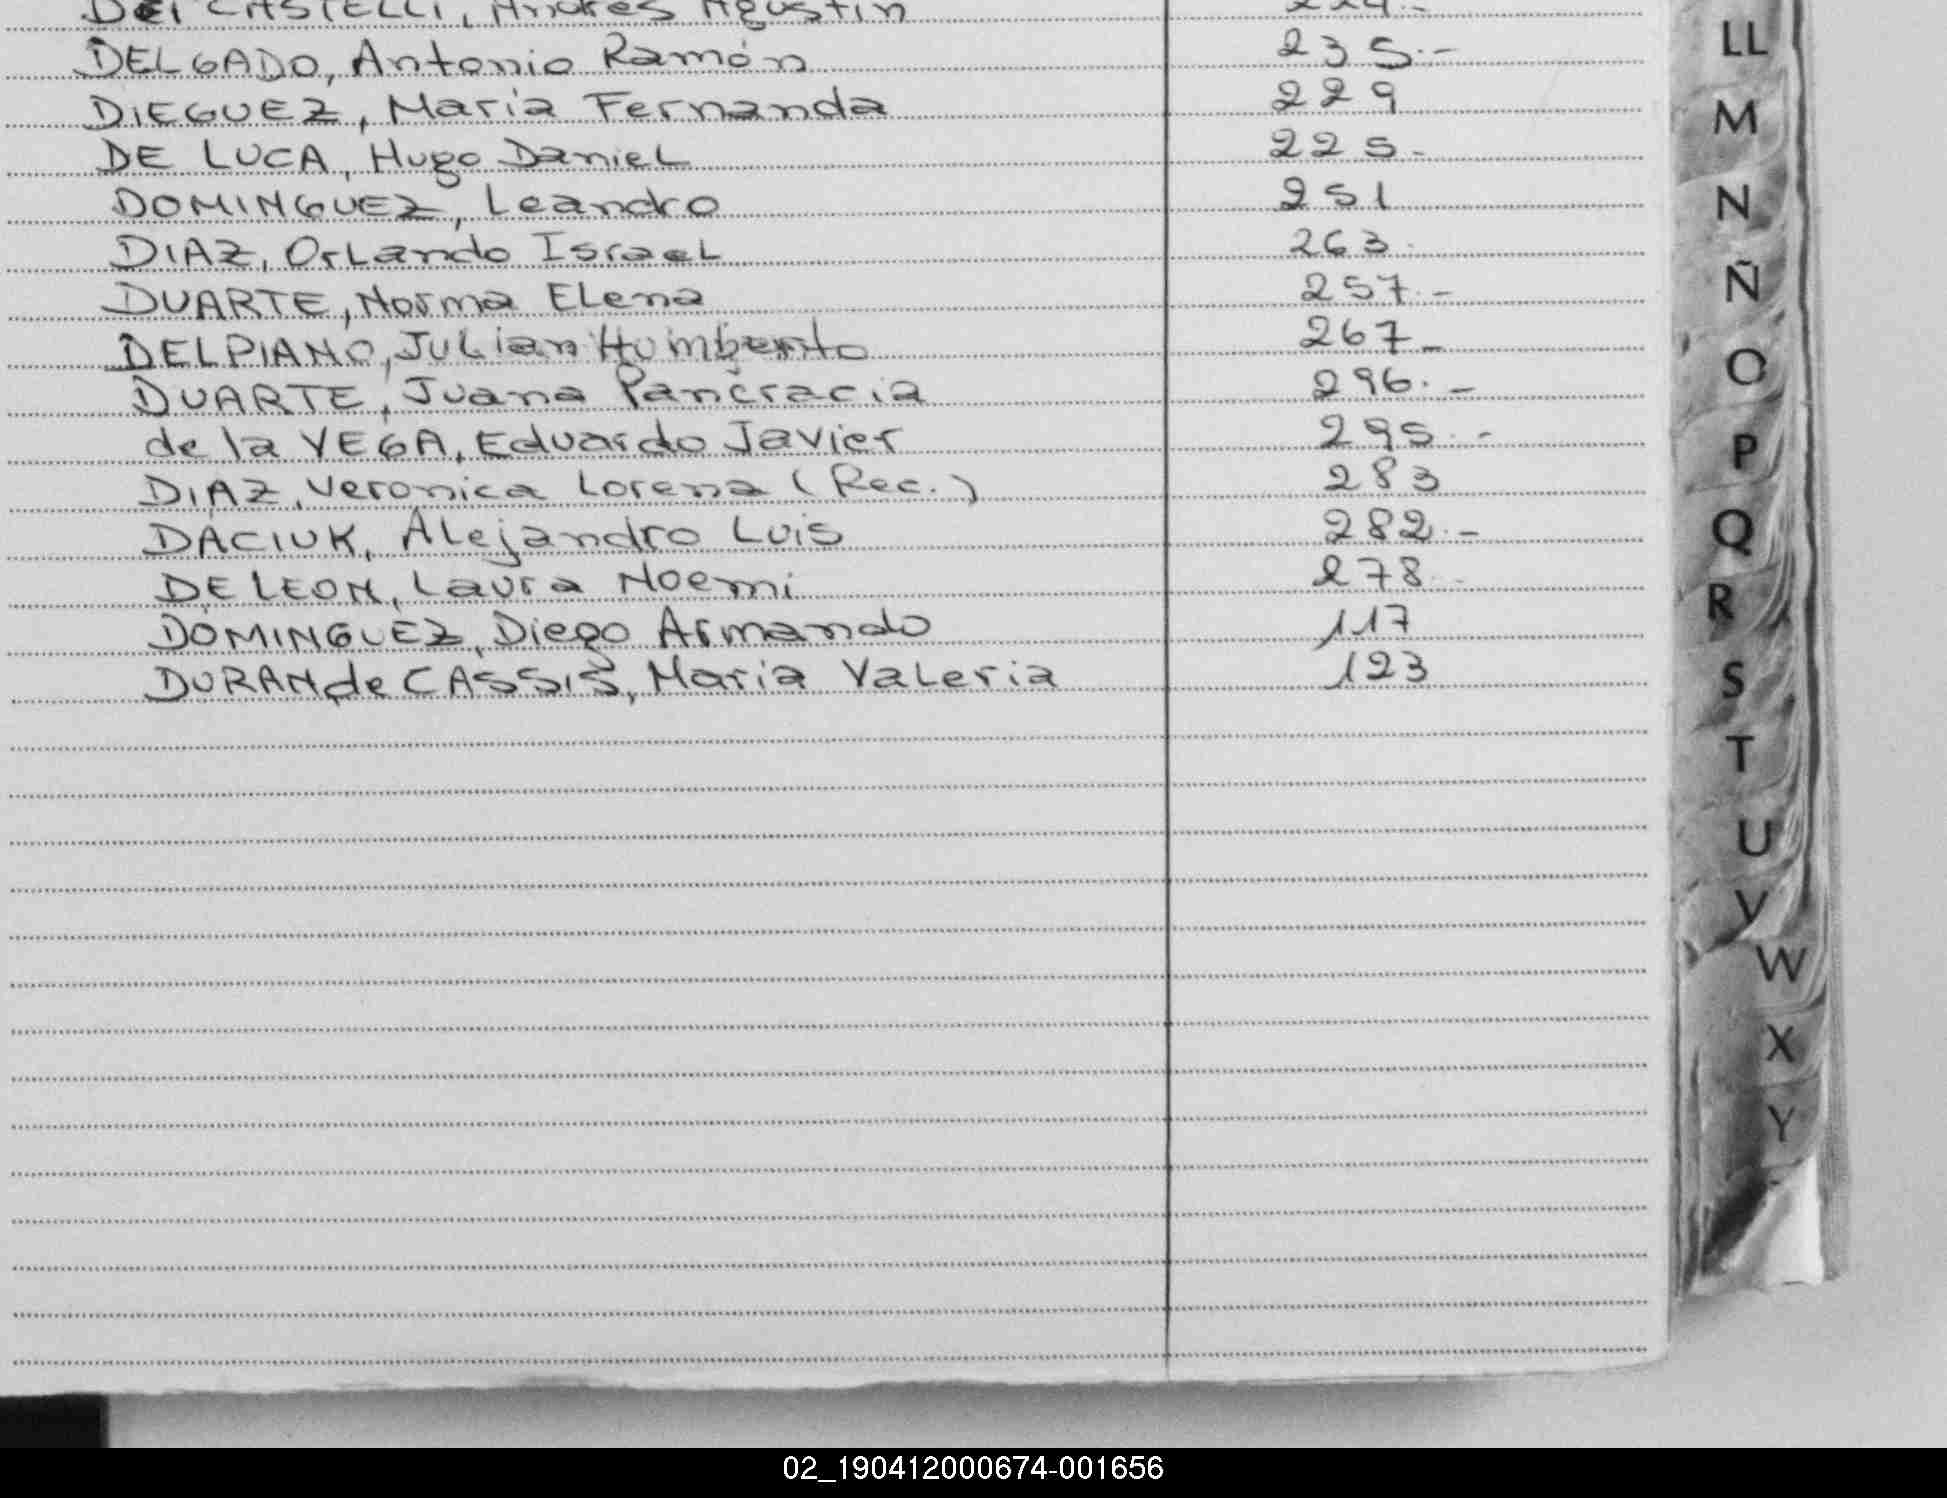 DEl CASTELLI, Andres Agustin
DELGADO, Antonio Ramón 235.-
DIEGUEZ, Maria Fernanda 229
DE LUCA, Hugo Daniel 225.-
DOMINGUEZ, Leandro 251
DIAZ, Orlando Israel 263.
DUARTE, Norma Elena 257.-
DELPIANO, Julian Humberto 267_
DUARTE, Juana Pancracia 296.-
de la VEGA, Eduardo Javier 295.-
DIAZ, Veronica Lorena (Rec.) 283
DACIUK, Alejandro Luis 282.-
DE LEON, Laura Noemi 278.-
DOMINGUEZ, Diego Armando 117
DURAN de CASSIS, Maria Valeria 123
LL
M
N
Ñ
O
P
Q
R
S
T
U
V
W
X
Y
02_190412000674-001656